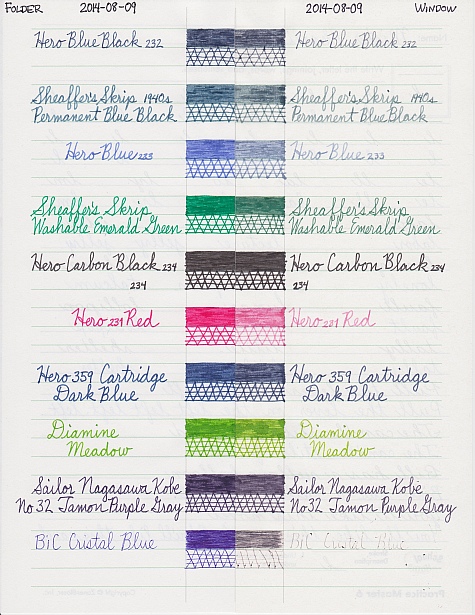 FOLDER 2014-08-09 2014-08-09 WINDOW
Hero Blue Black 232 Hero Blue Black 232
Sheaffer's Skrip 1940s Sheaffer's Skrip 1940s
Permanent Blue Black Permanent Blue Black
Hero Blue 233 Hero Blue 233
Sheaffer's Skrip Sheaffer's Skrip
Washable Emerald Green Washable Emerald Green
Hero Carbon Black 234 Hero Carbon Black 234
234 234
Hero 231 Red Hero 231 Red
Hero 359 Cartridge Hero 359 Cartridge
Dark Blue Dark Blue
Diamine Diamine
Meadow Meadow
Sailor Nagasawa Kobe Sailor Nagasawa Kobe
No 32 Tamon Purple Gray No32 Tamon Purple Gray
BiC Cristal Blue BiC Cristal Blue